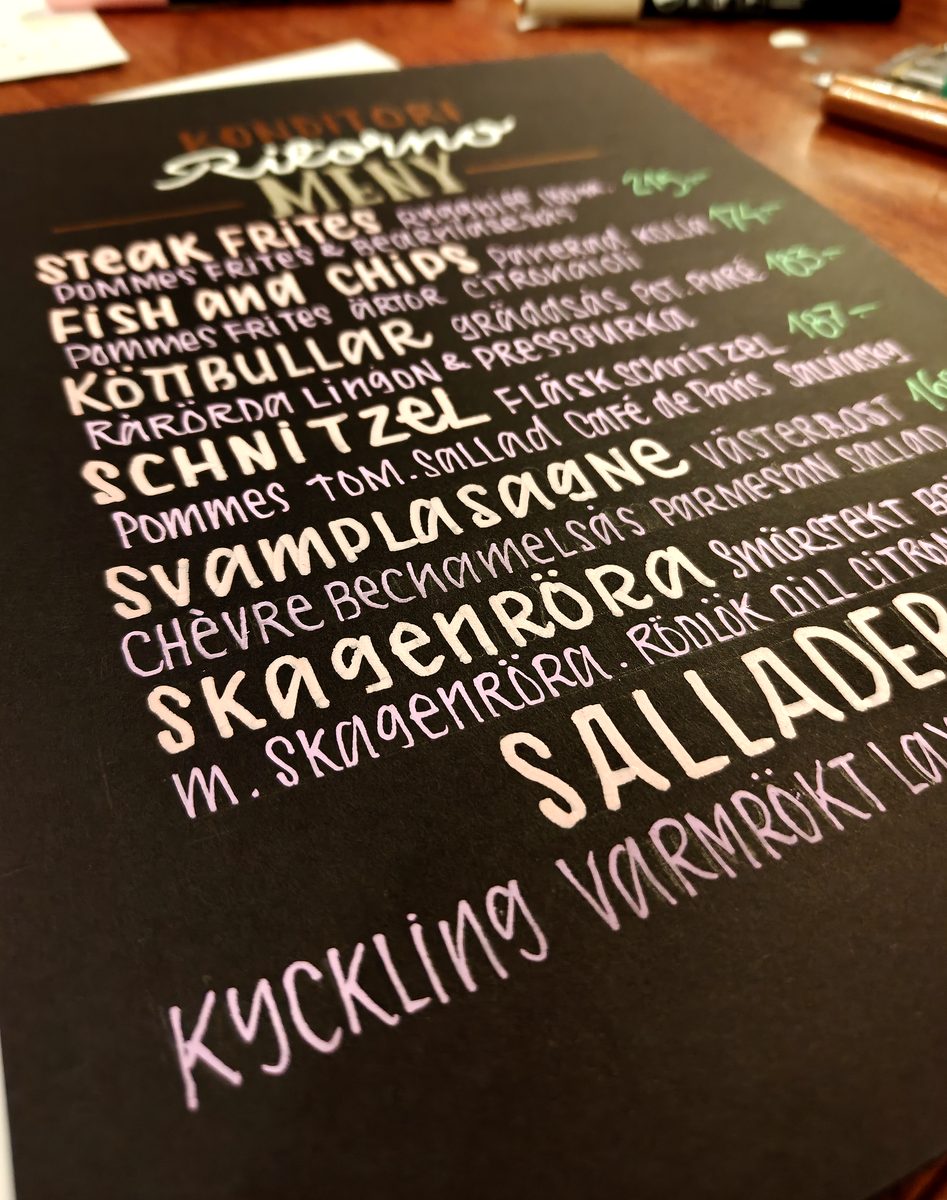 KONDITORI
Ritorno
MENY
STEAK FRITES 215:-
POMMES FRITES & BEARNAISESÅS
FISH and CHIPS PANERAD KOLJA 174:-
POMMES FRITES ÄRTOR CITRONAIOLI
KÖTTBULLAR GRÄDDSÅS POT. PURÉ 183:-
RÅRÖRDA LINGON & PRESSGURKA
SCHNITZEL FLÄSKSCHNITZEL 187:-
POMMES TOM. SALLAD CAFÉ de PARIS
SVAMPLASAGNE VÄSTERBOST
CHÈVRE BECHAMELSÅS PARMESAN SALLAD
SKAGENRÖRA SMÖRSTEKT
M. SKAGENRÖRA. RÖDLÖK DILL
SALLADER
KYCKLING VARMRÖKT